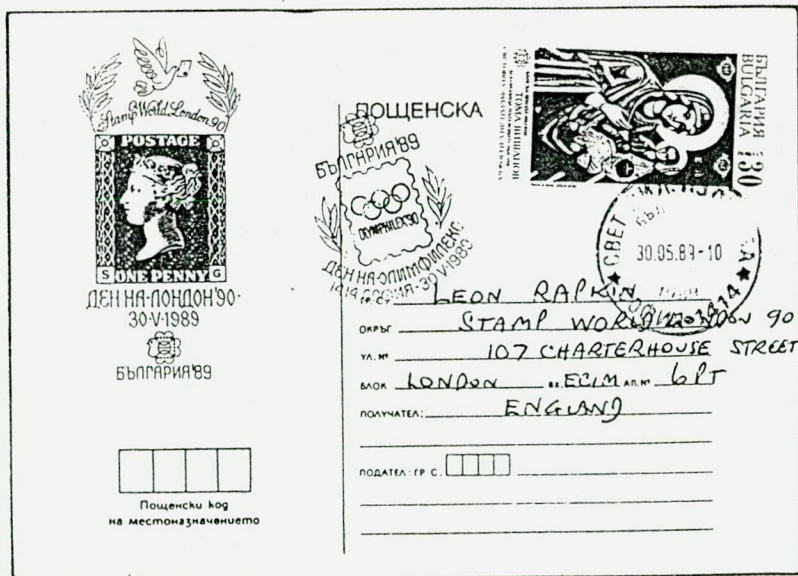 Stamp World London 90
POSTAGE
S G
ONE PENNY
ДЕН НА·ЛОНДОН'90·
30·V·1989
БЪЛГАРИЯ'89
Пощенски код
на местоназначението
ПОЩЕНСКА
БЪЛГАРИЯ'89
OLYMPHILEX'90
ДЕН НА·ОЛИМФИЛЕКС
1414 СОФИЯ·30·V·1989
БЪЛГАРИЯ
BULGARIA
30
ТОМА ВИШАНОВ
СВЕТ
30.05.89-10
LEON RAPKIN
ОКРЪГ STAMP WORLD LONDON 90
УЛ. № 107 CHARTERHOUSE STREET
БЛОК LONDON ВХ. EC1M АП. № 6PT
ПОЛУЧАТЕЛ: ENGLAND
ПОДАТЕЛ: ГР. С.